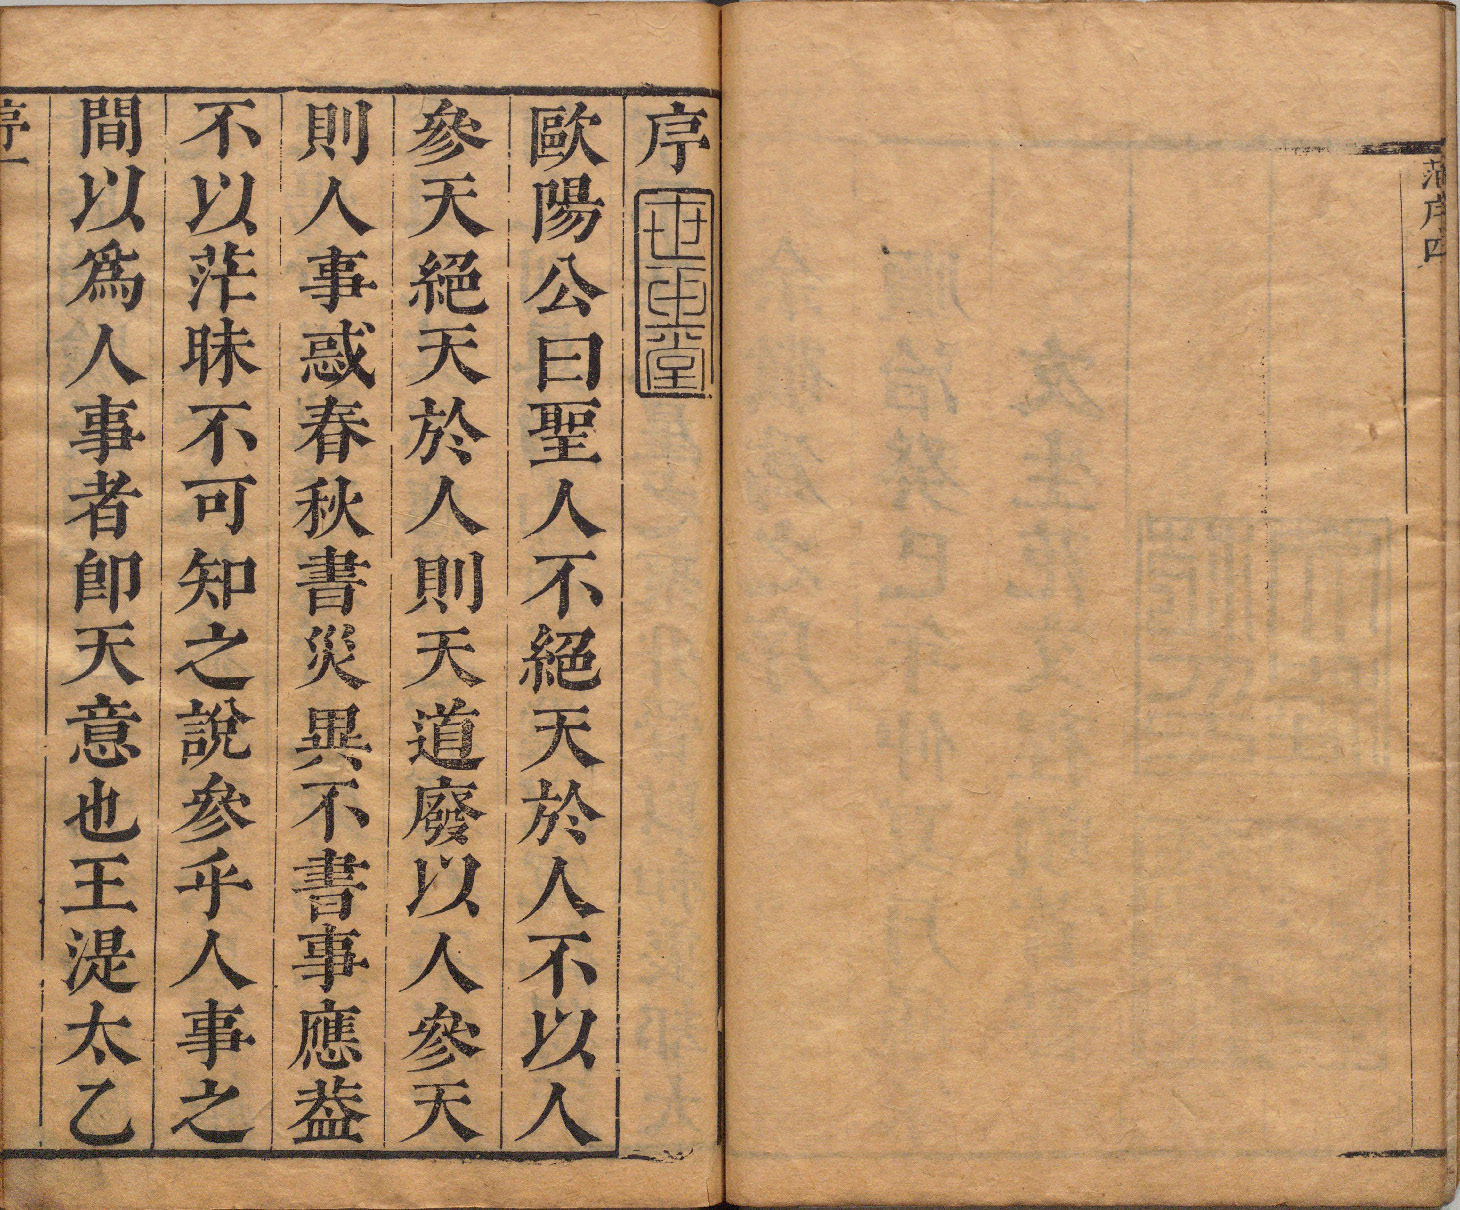 范序四
序
歐陽公曰聖人不絕天於人不以人
參天絕天於人則天道廢以人參天
則人事惑春秋書災異不書事應葢
不以茫昧不可知之說參乎人事之
間以爲人事者卽天意也王湜太乙
序一